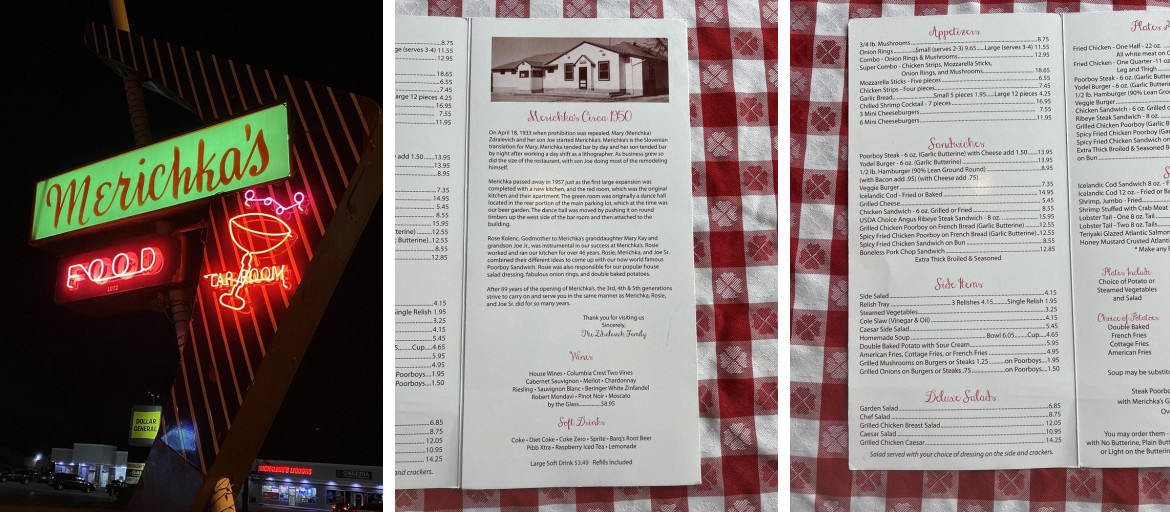 Merichka's
FOOD
TAP ROOM
DOLLAR
GENERAL
LIQUORS
8.75
ge (serves 3-4) 11.55
12.95
18.65
6.55
7.45
arge 12 pieces 4.25
16.95
7.55
11.95
add 1.50......13.95
13.95
8.95
7.35
14.95
5.45
8.55
15.95
utterine)..12.55
Butterine)..12.55
8.55
12.85
4.15
Single Relish 1.95
3.25
4.15
5.45
5......Cup....4.65
5.95
4.95
Poorboys....1.95
Poorboys....1.50
6.85
8.75
12.05
10.95
14.25
and crackers.
Merichka's Circa 1950
On April 18, 1933 when prohibition was repealed, Mary (Merichka)
Zdralevich and her son Joe started Merichka's. Merichka's is the Slovenian
translation for Mary. Merichka tended bar by day and her son tended bar
by night after working a day shift as a lithographer. As business grew so
did the size of the restaurant, with son Joe doing most of the remodeling
himself.
Merichka passed away in 1957 just as the first large expansion was
completed with a new kitchen, and the red room, which was the original
kitchen and their apartment. The green room was originally a dance hall
located in the rear portion of the main parking lot, which at the time was
our beer garden. The dance hall was moved by pushing it on round
timbers up the west side of the bar room and then attached to the
building.
Rose Kolenc, Godmother to Merichka's granddaughter Mary Kay and
grandson Joe Jr., was instrumental in our success at Merichka's. Rosie
worked and ran our kitchen for over 46 years. Rosie, Merichka, and Joe Sr.
combined their different ideas to come up with our now world famous
Poorboy Sandwich. Rosie was also responsible for our popular house
salad dressing, fabulous onion rings, and double baked potatoes.
After 89 years of the opening of Merichka's, the 3rd, 4th & 5th generations
strive to carry on and serve you in the same manner as Merichka, Rosie,
and Joe Sr. did for so many years.
Thank you for visiting us
Sincerely,
The Zdralevich Family
Wines
House Wines • Columbia Crest Two Vines
Cabernet Sauvignon • Merlot • Chardonnay
Riesling • Sauvignon Blanc • Beringer White Zinfandel
Robert Mondavi • Pinot Noir • Moscato
by the Glass..............$8.95
Soft Drinks
Coke • Diet Coke • Coke Zero • Sprite • Barq's Root Beer
Pibb Xtra • Raspberry Iced Tea • Lemonade
Large Soft Drink $3.49 Refills Included
Appetizers
3/4 lb. Mushrooms....8.75
Onion Rings....Small (serves 2-3) 9.65....Large (serves 3-4) 11.55
Combo - Onion Rings & Mushrooms....12.95
Super Combo - Chicken Strips, Mozzarella Sticks,
Onion Rings, and Mushrooms....18.65
Mozzarella Sticks - Five pieces....6.55
Chicken Strips - Four pieces....7.45
Garlic Bread....Small 5 pieces 1.95....Large 12 pieces 4.25
Chilled Shrimp Cocktail - 7 pieces....16.95
3 Mini Cheeseburgers....7.55
6 Mini Cheeseburgers....11.95
Sandwiches
Poorboy Steak - 6 oz. (Garlic Butterine) with Cheese add 1.50....13.95
Yodel Burger - 6 oz. (Garlic Butterine)....13.95
1/2 lb. Hamburger (90% Lean Ground Round)....8.95
(with Bacon add .95) (with Cheese add .75)
Veggie Burger....7.35
Icelandic Cod - Fried or Baked....14.95
Grilled Cheese....5.45
Chicken Sandwich - 6 oz. Grilled or Fried....8.55
USDA Choice Angus Ribeye Steak Sandwich - 8 oz.....15.95
Grilled Chicken Poorboy on French Bread (Garlic Butterine)..12.55
Spicy Fried Chicken Poorboy on French Bread (Garlic Butterine)..12.55
Spicy Fried Chicken Sandwich on Bun....8.55
Boneless Pork Chop Sandwich....12.85
Extra Thick Broiled & Seasoned
Side Items
Side Salad....4.15
Relish Tray....3 Relishes 4.15....Single Relish 1.95
Steamed Vegetables....3.25
Cole Slaw (Vinegar & Oil)....4.15
Caesar Side Salad....5.45
Homemade Soup....Bowl 6.05......Cup....4.65
Double Baked Potato with Sour Cream....5.95
American Fries, Cottage Fries, or French Fries....4.95
Grilled Mushrooms on Burgers or Steaks 1.25....on Poorboys....1.95
Grilled Onions on Burgers or Steaks .75....on Poorboys....1.50
Deluxe Salads
Garden Salad....6.85
Chef Salad....8.75
Grilled Chicken Breast Salad....12.05
Caesar Salad....10.95
Grilled Chicken Caesar....14.25
Salad served with your choice of dressing on the side and crackers.
Plates
Fried Chicken - One Half - 22 oz.
All white meat or
Fried Chicken - One Quarter - 11 oz
Leg and Thigh
Poorboy Steak - 6 oz. (Garlic Butter
Yodel Burger - 6 oz. (Garlic Butterine
1/2 lb. Hamburger (90% Lean Grou
Veggie Burger
Chicken Sandwich - 6 oz. Grilled o
Ribeye Steak Sandwich - 8 oz.
Grilled Chicken Poorboy (Garlic B
Spicy Fried Chicken Poorboy (Ga
Spicy Fried Chicken Sandwich on
Extra Thick Broiled & Seasoned B
on Bun
Icelandic Cod Sandwich 8 oz. - F
Icelandic Cod 12 oz. - Fried or Ba
Shrimp, Jumbo - Fried
Shrimp Stuffed with Crab Meat
Lobster Tail - One 8 oz. Tail
Lobster Tail - Two 8 oz. Tails
Teriyaki Glazed Atlantic Salmon
Honey Mustard Crusted Atlanti
* Make any
Plates Include
Choice of Potato or
Steamed Vegetables
and Salad
Choice of Potatoes
Double Baked
French Fries
Cottage Fries
American Fries
Soup may be substitu
Steak Poorb
with Merichka's G
You may order them -
with No Butterine, Plain Butt
or Light on the Butterin